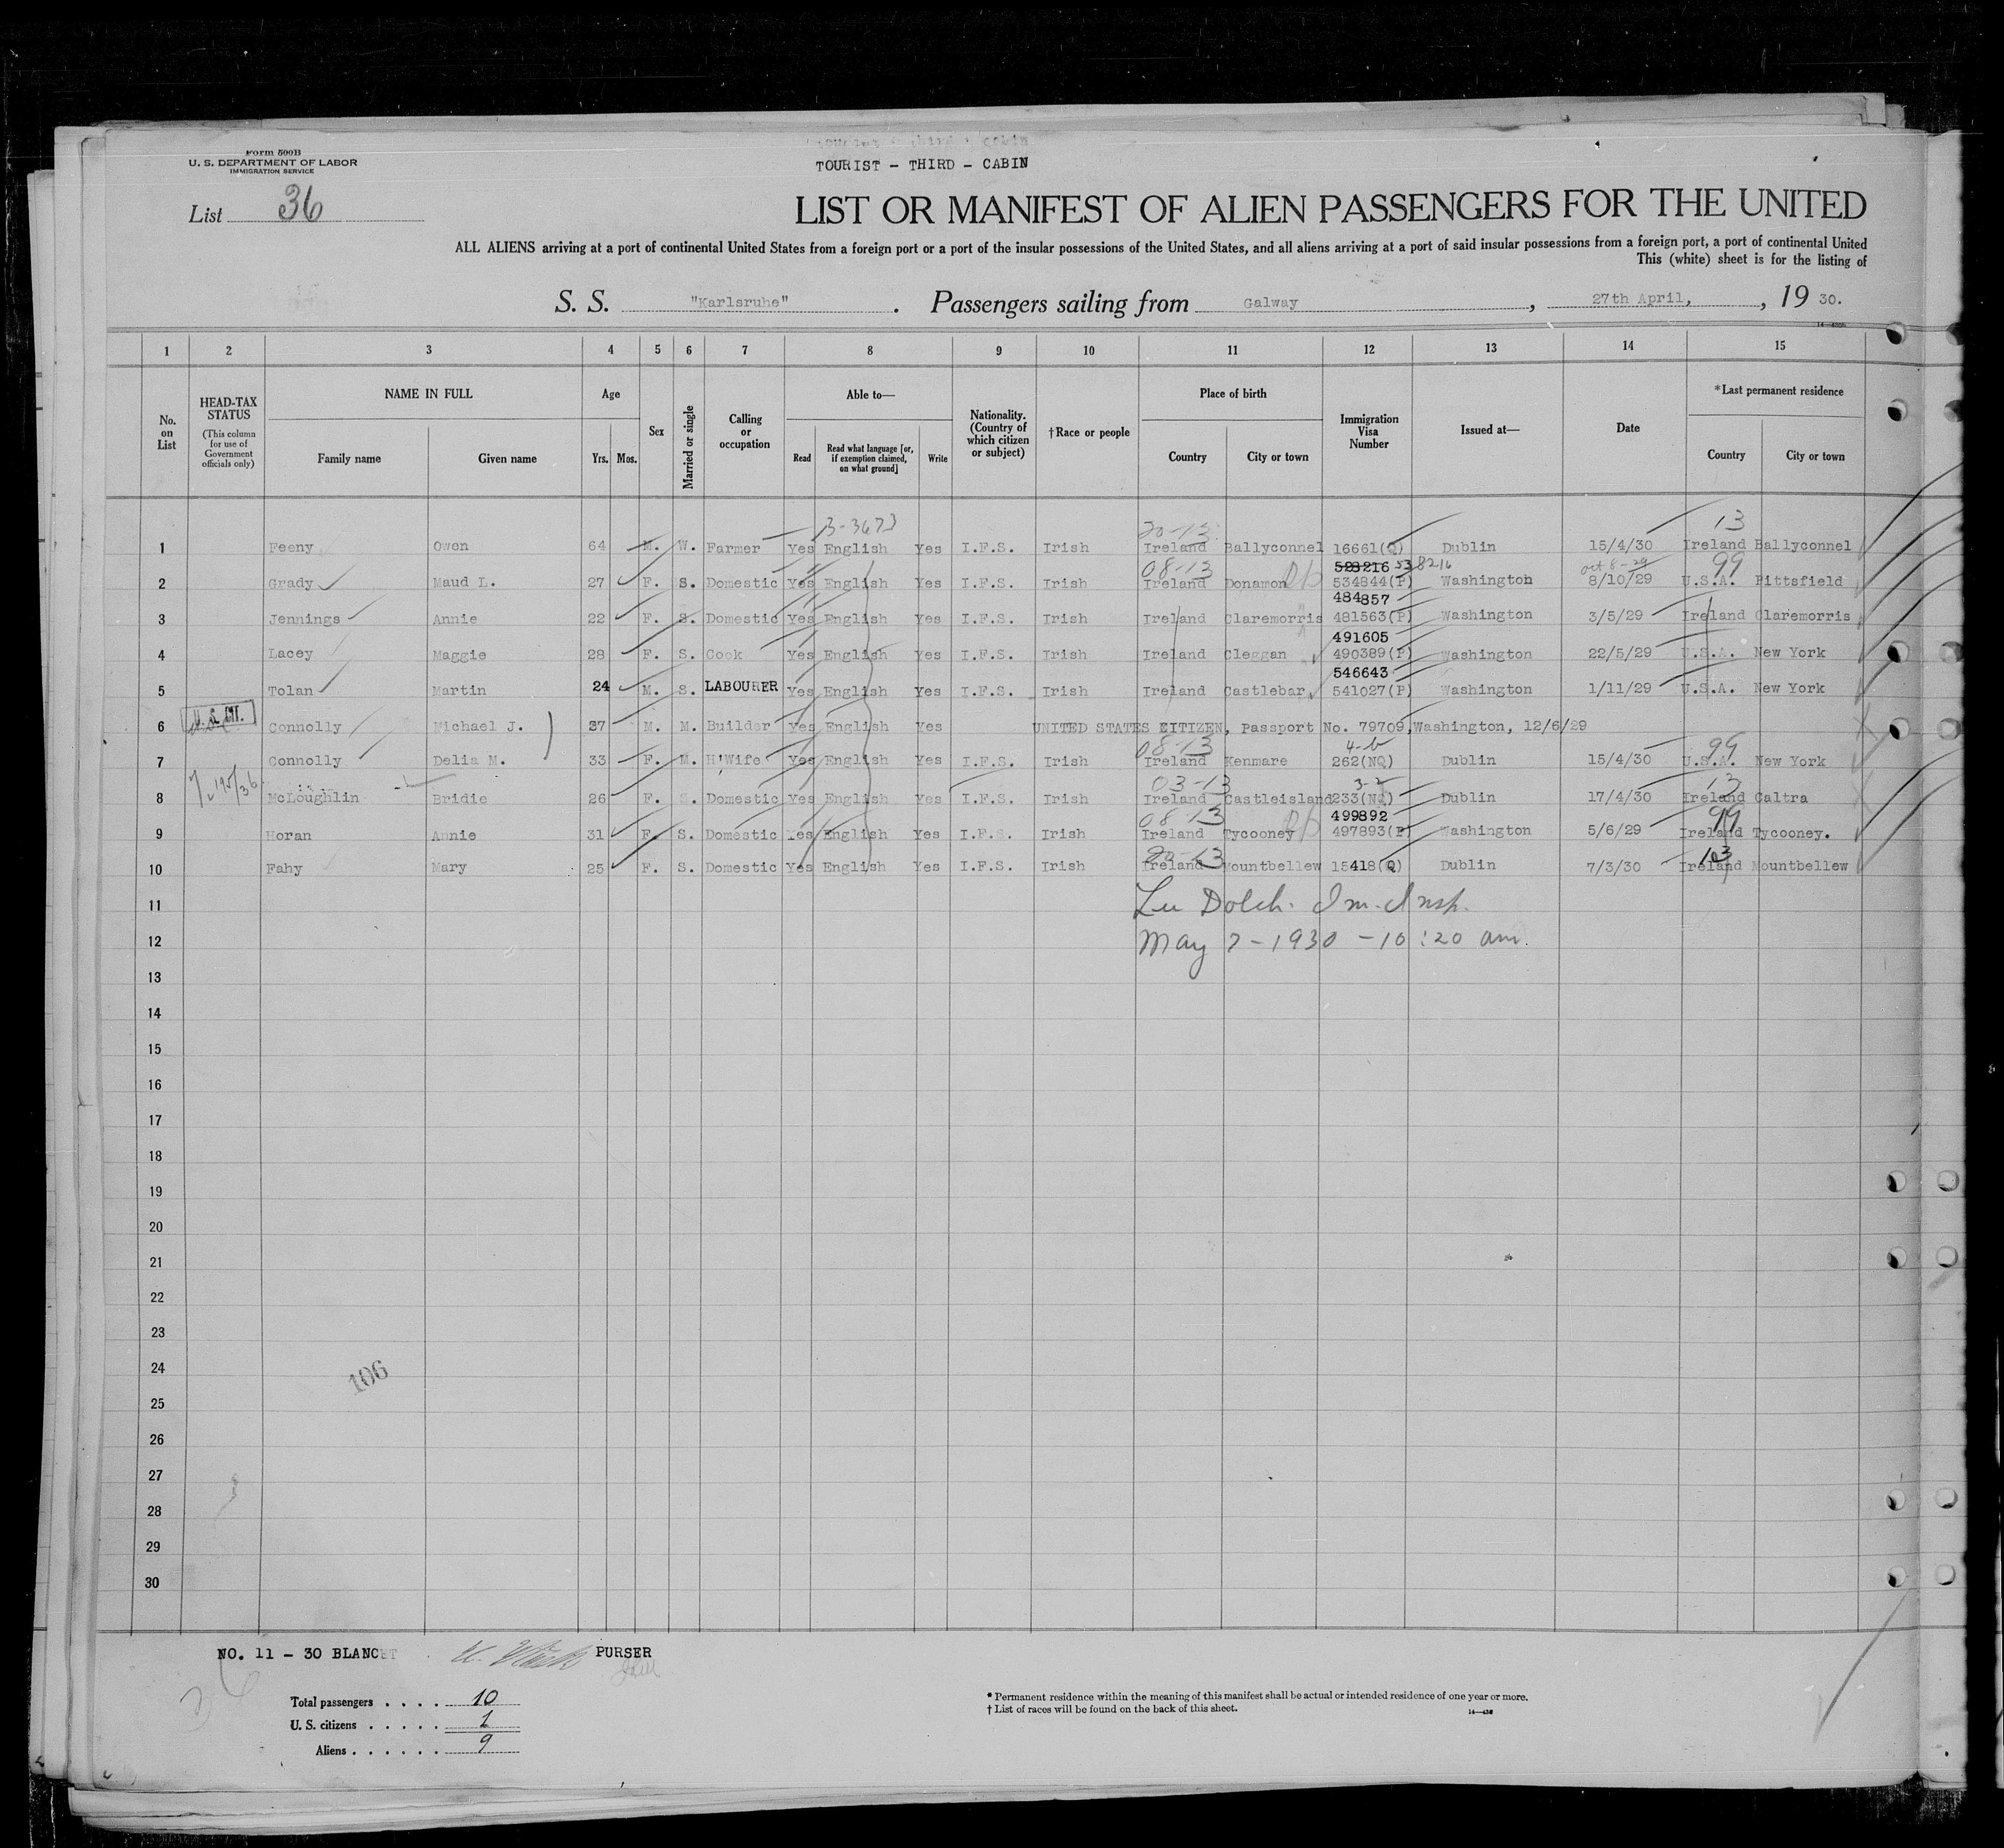 Form 500B
U. S. DEPARTMENT OF LABOR
IMMIGRATION SERVICE
TOURIST - THIRD - CABIN
List 36
LIST OR MANIFEST OF ALIEN PASSENGERS FOR THE UNITED
ALL ALIENS arriving at a port of continental United States from a foreign port or a port of the insular possessions of the United States, and all aliens arriving at a port of said insular possessions from a foreign port, a port of continental United
This (white) sheet is for the listing of
S. S. "Karlsruhe". Passengers sailing from Galway, 27th April, , 19 30.
1 2 3 4 5 6 7 8 9 10 11 12 13 14 15
No. on List
HEAD-TAX STATUS (This column for use of Government officials only)
NAME IN FULL Family name Given name
Age Yrs. Mos.
Sex
Married or single
Calling or occupation
Able to— Read Read what language [or, if exemption claimed, on what ground] Write
Nationality. (Country of which citizen or subject)
†Race or people
Place of birth Country City or town
Immigration Visa Number
Issued at—
Date
*Last permanent residence Country City or town
3-3673 20-13 13
1 Feeny Owen 64 M. W. Farmer Yes English Yes I.F.S. Irish Ireland Ballyconnel 16661(Q) Dublin 15/4/30 Ireland Ballyconnel
08-13 528216 538216 Oct 8-29 99
2 Grady Maud L. 27 F. S. Domestic Yes English Yes I.F.S. Irish Ireland Donamon 534844(P) Washington 8/10/29 U.S.A. Pittsfield
484857
3 Jennings Annie 22 F. S. Domestic Yes English Yes I.F.S. Irish Ireland Claremorris 481563(P) Washington 3/5/29 Ireland Claremorris
491605
4 Lacey Maggie 28 F. S. Cook Yes English Yes I.F.S. Irish Ireland Cleggan 490389(P) Washington 22/5/29 U.S.A. New York
546643
5 Tolan Martin 24 M. S. LABOURER Yes English Yes I.F.S. Irish Ireland Castlebar 541027(P) Washington 1/11/29 U.S.A. New York
6 Connolly Michael J. 37 M. M. Builder Yes English Yes UNITED STATES CITIZEN, Passport No. 79709, Washington, 12/6/29
08-13 99
7 Connolly Delia M. 33 F. M. H'Wife Yes English Yes I.F.S. Irish Ireland Kenmare 262(NQ) Dublin 15/4/30 U.S.A. New York
03-13 3-2 13
8 McLoughlin Bridie 26 F. S. Domestic Yes English Yes I.F.S. Irish Ireland Castleisland 233(NQ) Dublin 17/4/30 Ireland Caltra
08-13 499892 99
9 Horan Annie 31 F. S. Domestic Yes English Yes I.F.S. Irish Ireland Tycooney 497893(P) Washington 5/6/29 Ireland Tycooney.
10 Fahy Mary 25 F. S. Domestic Yes English Yes I.F.S. Irish Ireland Mountbellew 15418(Q) Dublin 7/3/30 Ireland Mountbellew
11 Dolch. Im. Insp.
12 May 7-1930 - 10:20 am.
13
14
15
16
17
18
19
20
21
22
23
24
25
26
27
28
29
30
106
NO. 11 - 30 BLANCET PURSER
Total passengers . . . . 10
U. S. citizens . . . . . 1
Aliens . . . . . . 9
* Permanent residence within the meaning of this manifest shall be actual or intended residence of one year or more.
† List of races will be found on the back of this sheet.